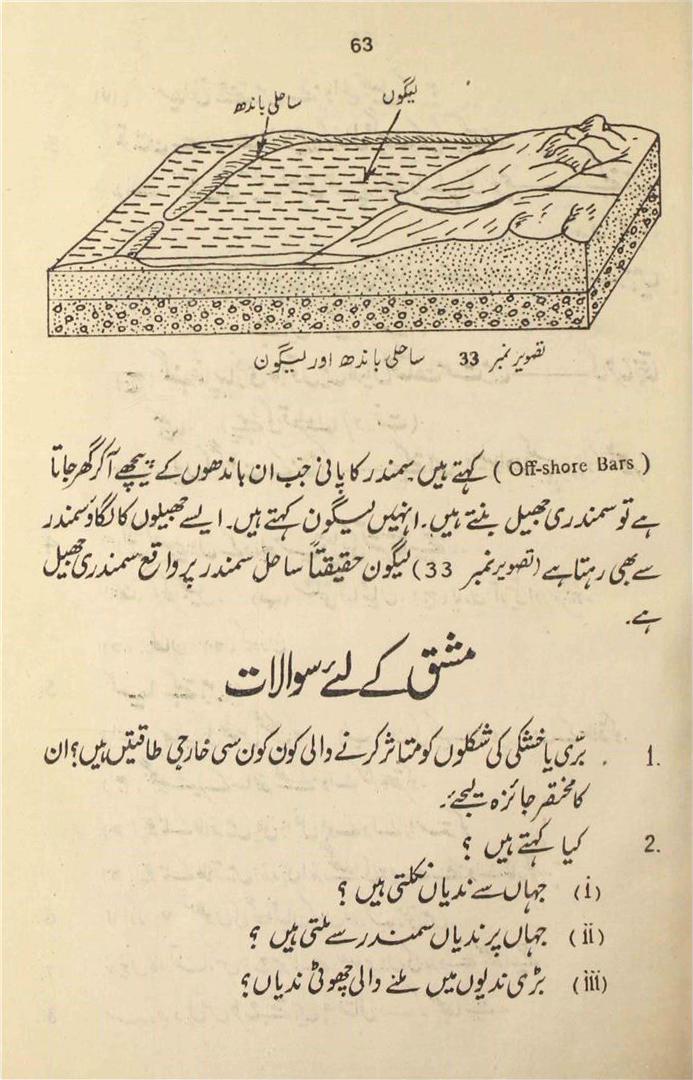 63
ساحلی باندھ
لیگوں
تصویر نمبر 33 ساحلی باندھ اور لیگون
(Off-shore Bars) کہتے ہیں سمندر کا پانی جب ان باندھوں کے پیچھے آکر گھر جاتا
ہے تو سمندری جھیل بنتے ہیں۔ انہیں لیگون کہتے ہیں۔ ایسے جھیلوں کا لگاؤ سمندر
سے بھی رہتا ہے (تصویر نمبر 33) لیگون حقیقتاً ساحل سمندر پر واقع سمندری جھیل
ہے۔
مشق کے لئے سوالات
1. برّی یا خشکی کی شکلوں کو متاثر کرنے والی کون کون سی خارجی طاقتیں ہیں؟ ان
کا مختصر جائزہ لیجئے۔
2. کیا کہتے ہیں ؟
(i) جہاں سے ندیاں نکلتی ہیں ؟
(ii) جہاں پر ندیاں سمندر سے ملتی ہیں ؟
(iii) بڑی ندیوں میں ملنے والی چھوٹی ندیاں؟